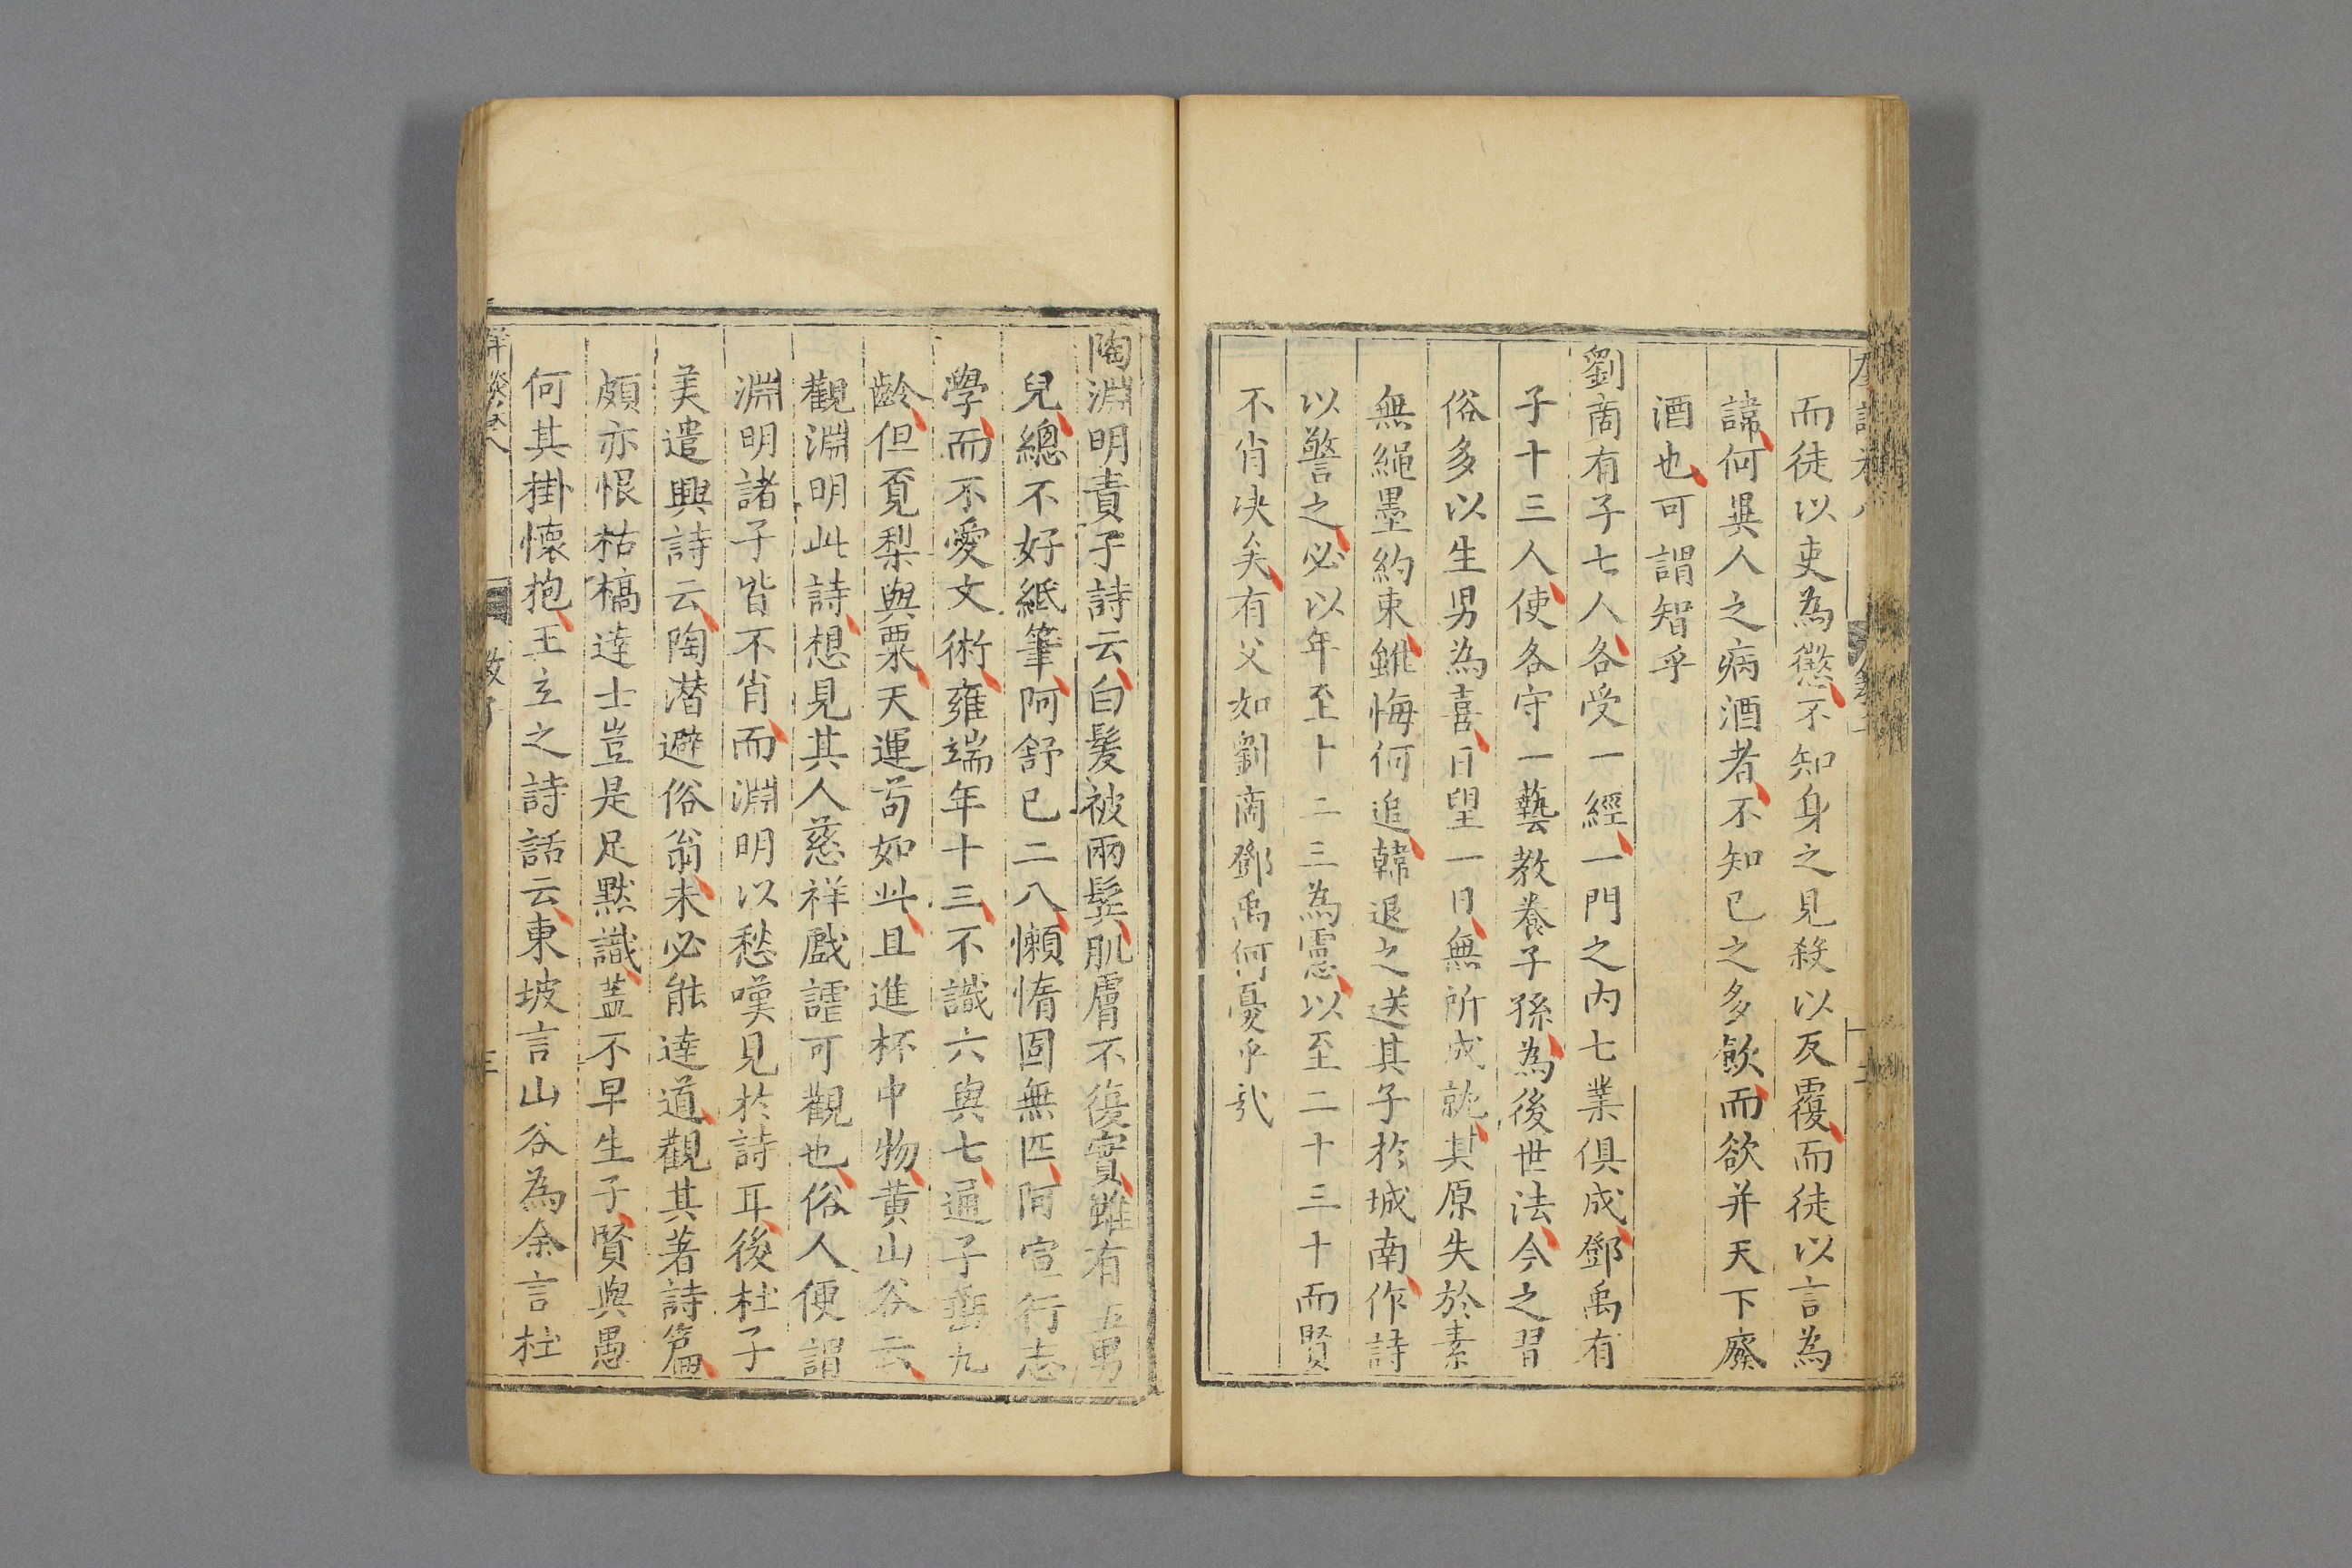 而徒以吏為懲不知身之見殺以反覆而徒以言為
諱何異人之病酒者不知已之多飲而欲并天下廢
酒也可謂智乎
劉啇有子七人各受一經一門之内七業俱成鄧禹有
子十三人使各守一藝教養子孫為後世法今之習
俗多以生男為喜日望一日無所成就其原失於素
無繩墨約束雖悔何追韓退之送其子於城南作詩
以警之必以年至十二三為慮以至二十三十而賢
不肖决矣有父如劉啇鄧禹何憂乎哉
陶淵明責子詩云白髮被兩鬂肌膚不復實雖有五男
兒總不好紙筆阿舒已二八懶惰固無匹阿宣行志
學而不愛文術雍端年十三不識六與七通子垂九
齡但覔梨與栗天運苟如此且進杯中物黄山谷云
觀淵明此詩想見其人慈祥戯謔可觀也俗人便謂
淵明諸子皆不肖而淵明以愁嘆見於詩耳後杜子
美遣興詩云陶潜避俗翁未必能達道觀其著詩篇
頗亦恨枯槁達士豈是足黙識盖不早生子賢與愚
何其掛懷抱王立之詩話云東坡言山谷為余言杜